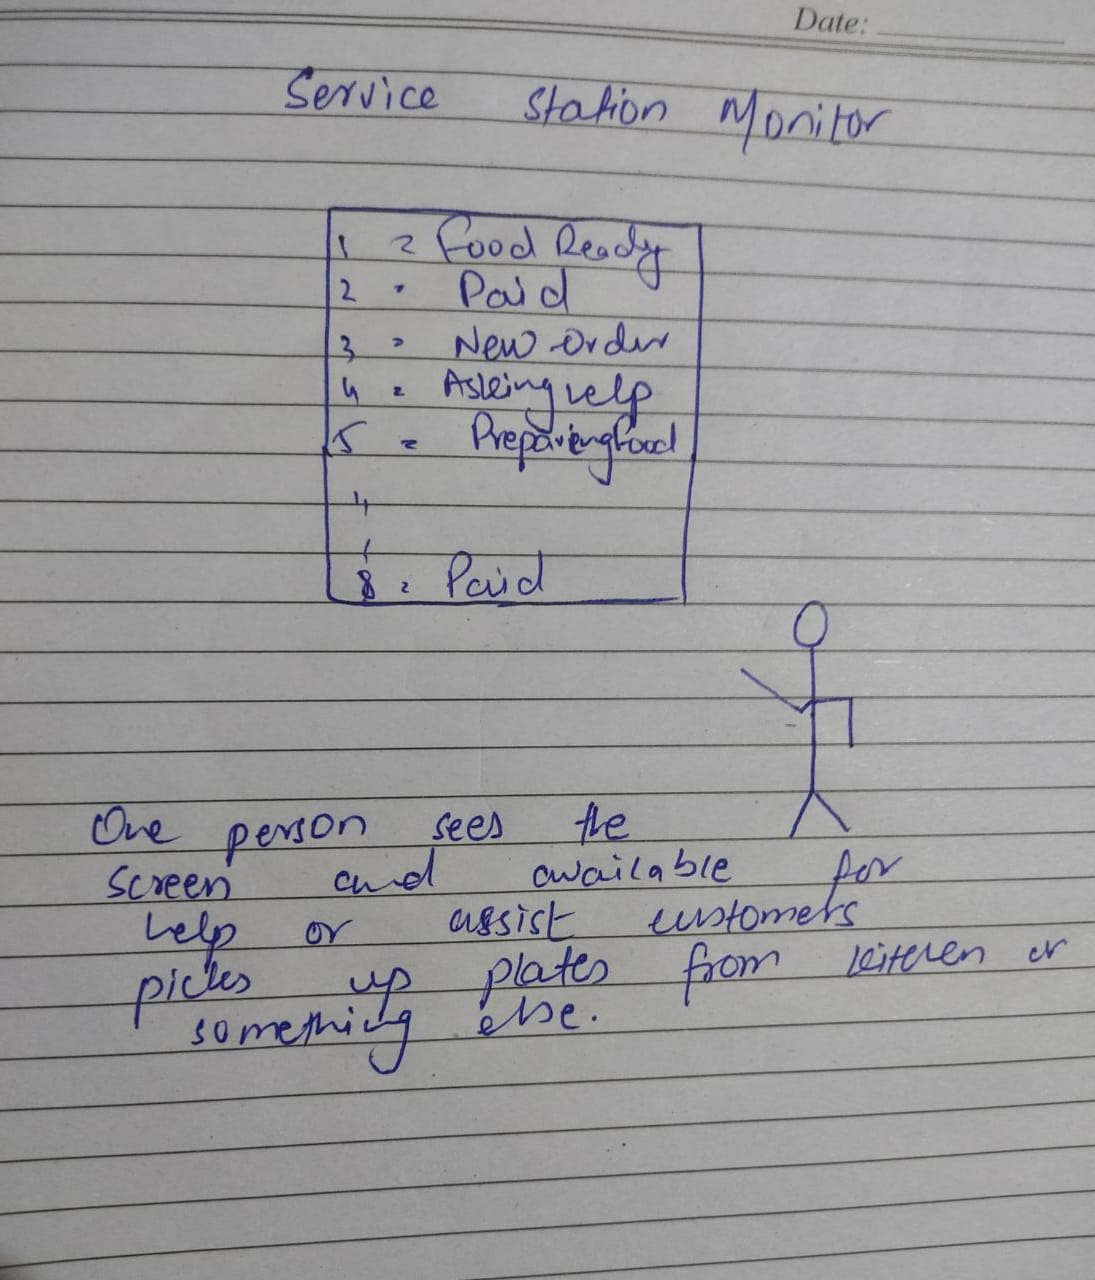 Date:
Service Station Monitor
1 = Food Ready
2 = Paid
3 = New Order
4 = Asking help
5 = Preparing food
8 = Paid
One person sees the
screen and available for
help or assist customers
picks up plates from kitchen or
something else.